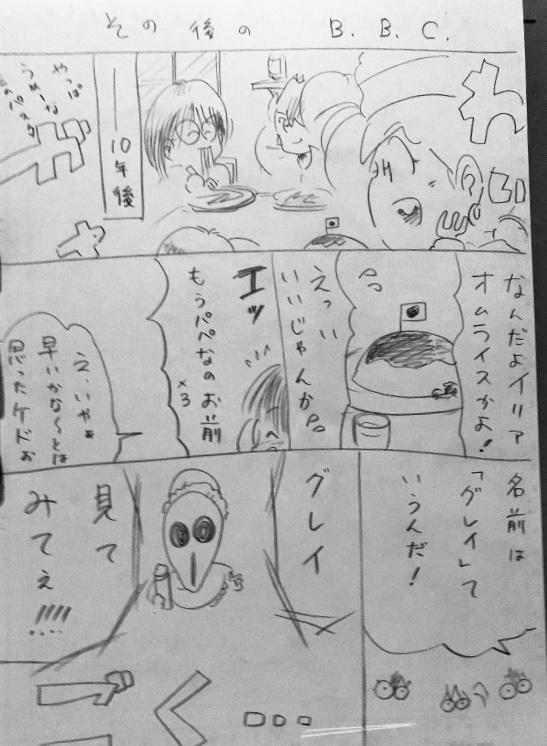 その後のB.B.C.
ガ
ロ
――10年後
やっぱ
うめーな
パスタ
なんだよイリア
オムライスかよ!
えっい
いいじゃんか。
エッ
もうパパなのお前
×3
え、いやぁ
早いかな〜とは
思ったケドぉ
名前は
「グレイ」て
いうんだ!
グレイ
見て
みてぇ!!!!